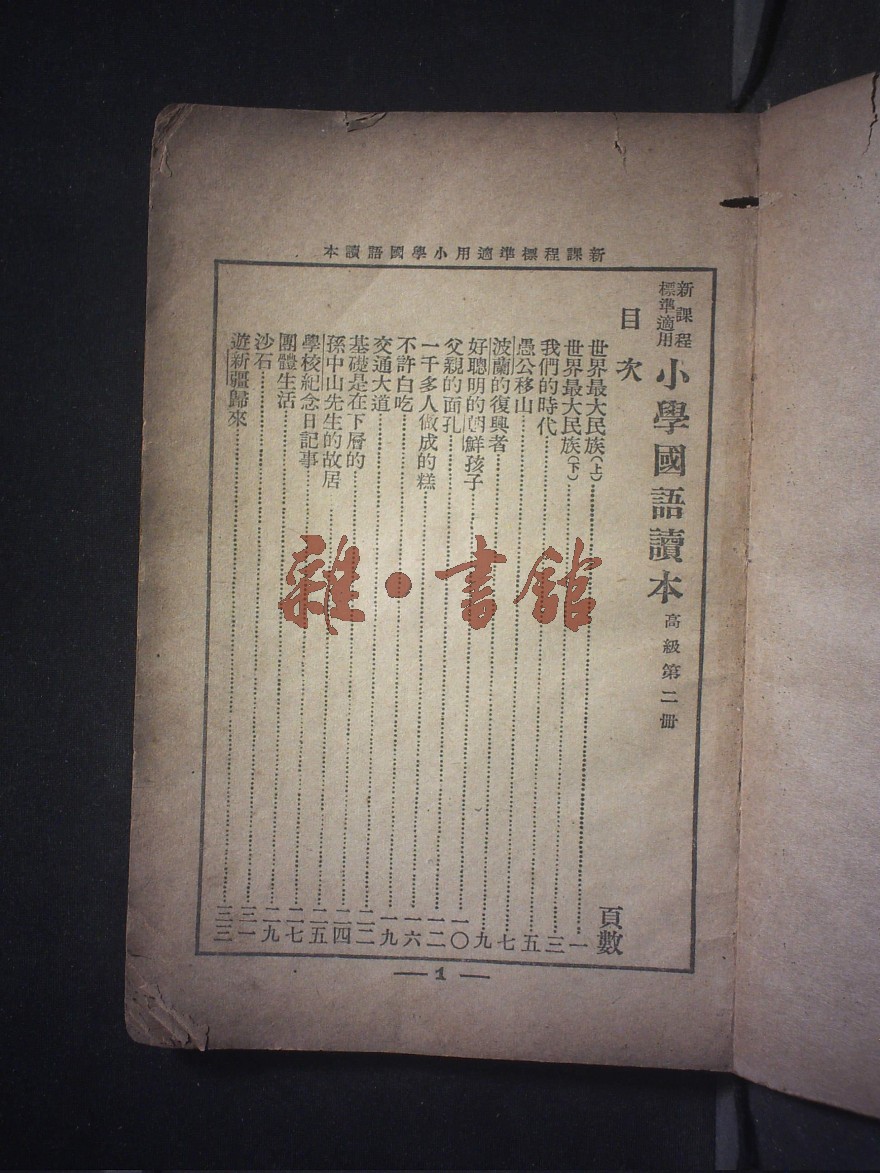 新課程標準適用小學國語讀本
新課程標準適用 小學國語讀本 高級第二冊
目次 頁數
世界最大民族(上)……一
世界最大民族(下)……三
我們的時代……五
愚公移山……七
波蘭的復興者……九
好聰明的朝鮮孩子……一〇
父親的面孔……一二
一千多人做成的糕……一六
不許白吃……一九
交通大道……二二
基礎是在下層的……二四
孫中山先生的故居……二五
學校紀念日記事……二七
團體生活……二九
沙石……三一
遊新疆歸來……三三
雜·書館
— 1 —